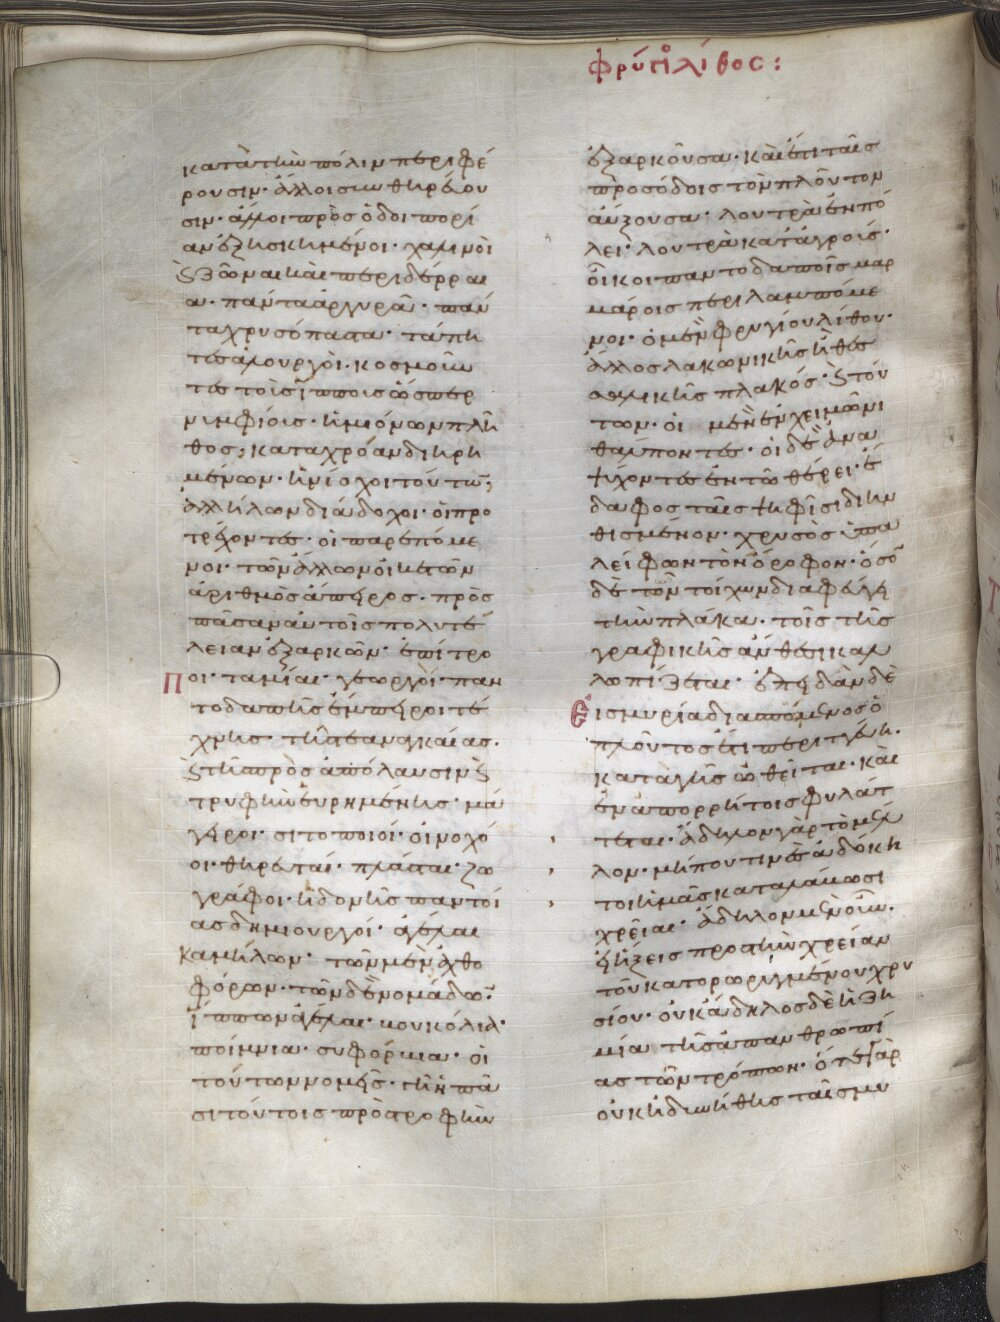 φρύγι λίθος:
κατὰ τὴν πόλιν περιφέ
ρουσιν· ἄλλοι συνθηρεύου
σιν· ἄλλοι πρὸς ὁδοιπορί
αν ἐξησκημένοι· χαλινοὶ
ϗ ζῶναι καὶ περιδέρραι
α· πάντα ἀργυρᾶ· πάν
τα χρυσόπαστα· τάπη
τες ἁλουργοὶ· κοσμοῦν
τες τοὺς ἵππους ὥσπερ
νυμφίους· ἡμιόνων πλῆ
θος· κατὰ χρόαν διῃρη
μένων· ἡνίοχοι τούτων·
ἀλλήλων διάδοχοι· οἱ προ
τρέχοντες· οἱ παρεπόμε
νοι· τῶν ἄλλων οἰκετῶν
ἀριθμὸς ἄπειρος· πρὸς
πᾶσαν αὐτοῖς πολυτέ
λειαν ἐξαρκῶν· ἐπίτρο
ποι· ταμίαι· γεωργοὶ· παν
τοδαπῆς ἔμπειροι τέ
χνης· τῆς τε ἀναγκαίας·
ϗ τῆς πρὸς ἀπόλαυσιν ϗ
τρυφὴν εὑρημένης· μά
γειροι· σιτοποιοί· οἰνοχό
οι· θηρευταί· πλάσται· ζω
γράφοι· ἡδονῆς παντοί
ας δημιουργοί· ἀγέλαι
καμήλων· τῶν μὲν ἀχθο
φόρων· τῶν δὲ νομάδων·
ἵππων ἀγέλαι· βουκόλια·
ποίμνια· συφόρβια· οἱ
τούτων νομεῖς· γῆ ἡ πᾶ
σι τούτοις πρὸς τροφὴν
ἐξαρκοῦσα· καὶ ἔτι ταῖς
προσόδοις τὸν πλοῦτον
αὔξουσα· λουτρὰ ἐν πό
λει· λουτρὰ κατ' ἀγρούς·
οἶκοι παντοδαποῖς μαρ
μάροις περιλαμπόμε
νοι· ὁ μὲν φρυγίου λίθου·
ἄλλος λακωνικῆς ἢ θεσ
σαλικῆς πλακός· ϗ τού
των· οἱ μὲν ἐν χειμῶνι
θάλποντες· οἱ δὲ ἀνα
ψύχοντες ἐν τῷ θέρει· ἔ
δαφος ταῖς ψηφῖσι διην
θισμένον· χρυσὸς ὑπα
λείφων τὸν ὄροφον· ὅσον
δὲ τῶν τοίχων διαφεύγει
τὴν πλάκα· τοῖς τῆς
γραφικῆς ἄνθεσι καλ
λωπίζεται· ἐπειδὰν δὲ
εἰς μυρία διασπώμενος ὁ
πλοῦτος ἔτι περιττεύῃ·
κατὰ γῆς ὠθεῖται· καὶ
ἐν ἀπορρήτοις φυλάτ
τεται· ἄδηλον γὰρ τὸ μέλ
λον· μήπου τινὲς ἀδόκη
τοι ἡμᾶς καταλάβωσι
χρεῖαι· ἄδηλον μὲν οὖν·
εἰ ἥξεις πρὸς τὴν χρείαν
τοῦ κατορωρυγμένου χρυ
σίου· οὐκ ἄδηλος δὲ ἡ ζη
μία τῆς ἀπανθρωπί
ας τῶν τρόπων· ὅτε γὰρ
οὐκ ἠδυνήθης ταῖς μυ